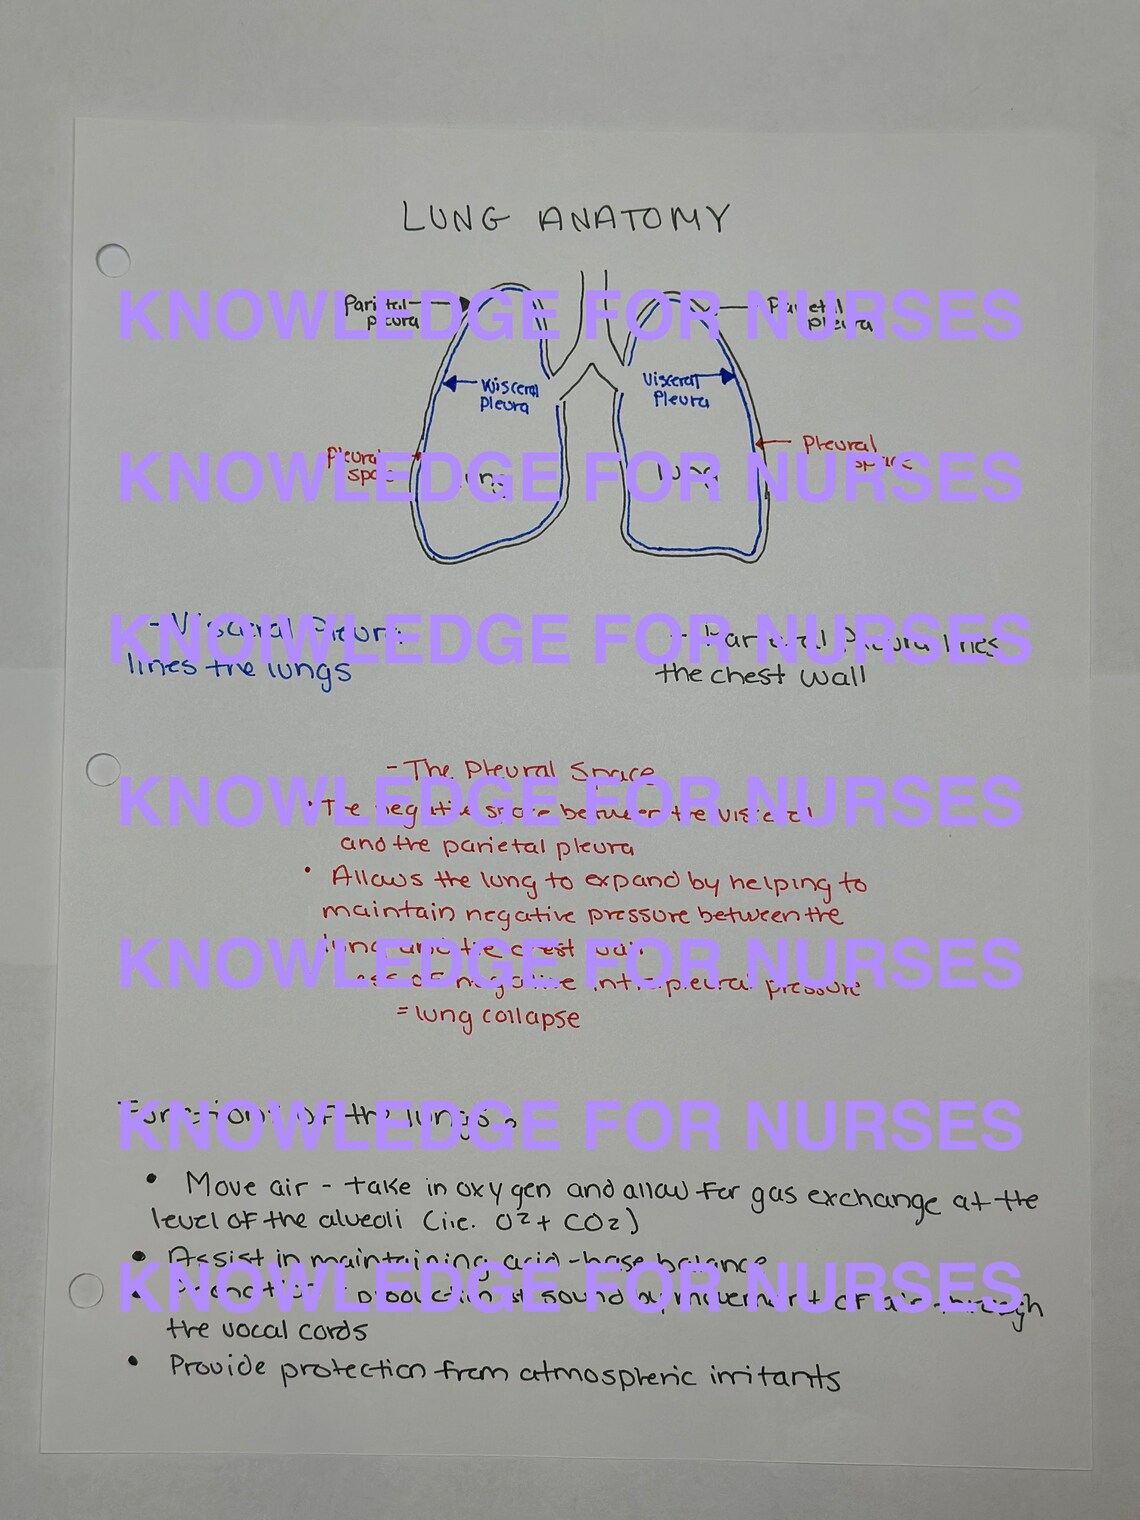 LUNG ANATOMY
KNOWLEDGE FOR NURSES
Parietal pleura
Parietal pleura
Visceral pleura
Visceral Pleura
KNOWLEDGE FOR NURSES
Pleural space
Pleural space
lung
lung
KNOWLEDGE FOR NURSES
- Visceral Pleura
lines the lungs
- Parietal Pleura lines
the chest wall
KNOWLEDGE FOR NURSES
- The Pleural Space
• The negative space between the visceral
and the parietal pleura
• Allows the lung to expand by helping to
maintain negative pressure between the
lung and the chest wall
KNOWLEDGE FOR NURSES
of negative intrapleural pressure
= lung collapse
KNOWLEDGE FOR NURSES
Functions of the lungs
• Move air - take in oxygen and allow for gas exchange at the
level of the alveoli (i.e. O2 + CO2)
• Assist in maintaining acid-base balance
KNOWLEDGE FOR NURSES
• production of sound by movement of air through
the vocal cords
• Provide protection from atmospheric irritants